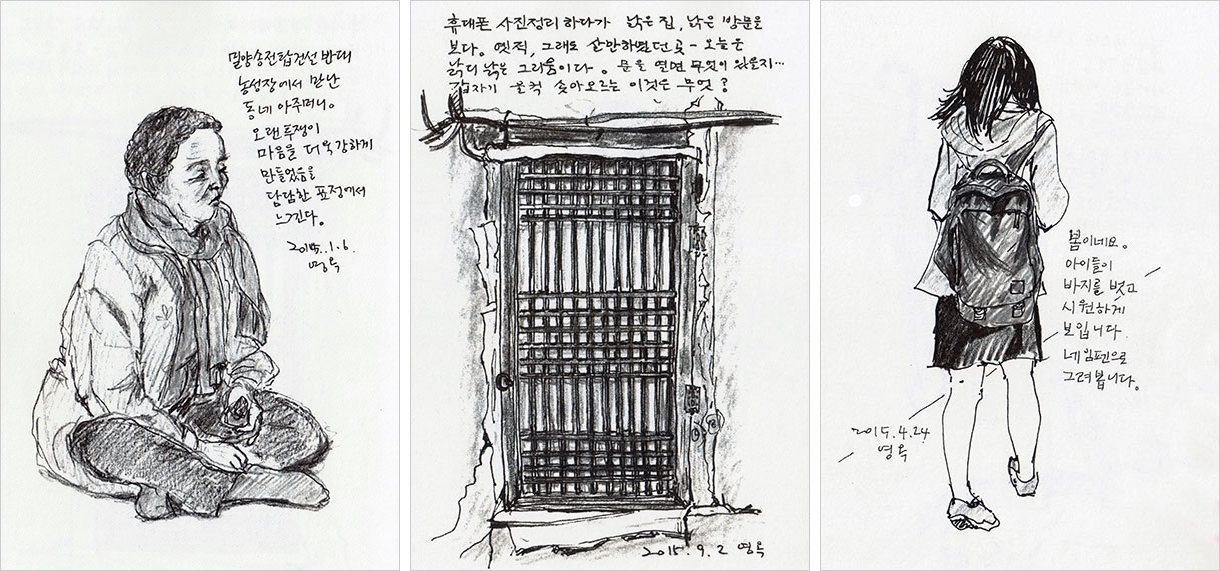 밀양송전탑건설 반대
농성장에서 만난
동네 아주머니.
오랜투쟁이
마음을 더욱 강하게
만들었음을
담담한 표정에서
느낀다.
2015.1.6.
영욱
휴대폰 사진정리하다가 낡은 집, 낡은 방문을
보다. 옛적, 그래도 산만하였던 곳 - 오늘은
낡디 낡은 그리움이다. 문을 열면 무엇이 있을지…
갑자기 울컥 솟아오르는 이것은 무엇?
2015.9.2 영욱
봄이네요.
아이들이
바지를 벗고
시원하게
보입니다
네임펜으로
그려봅니다.
2015.4.24
영욱